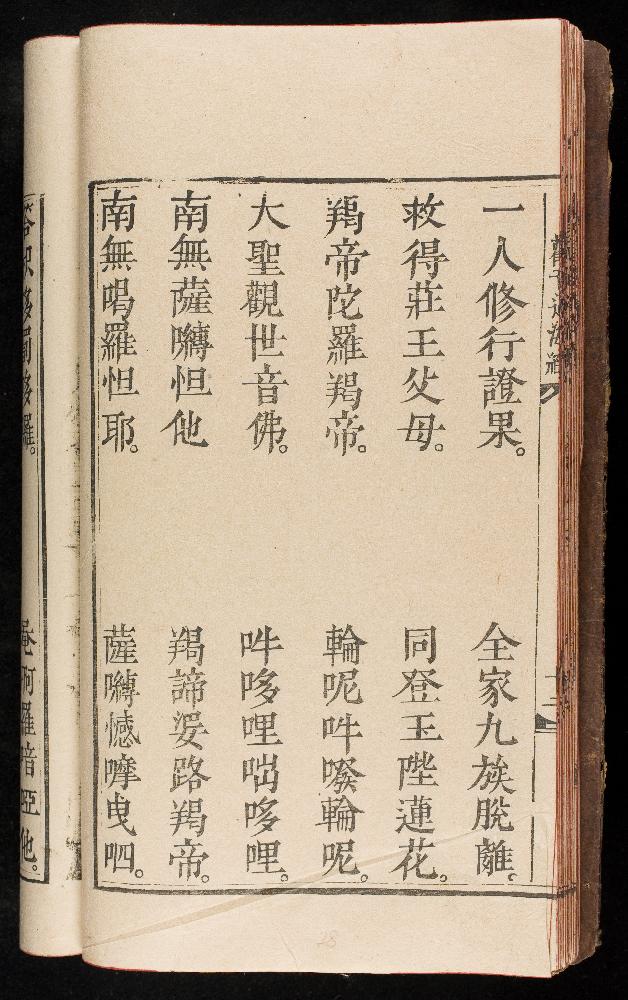 一人修行證果。 全家九族脫離。
救得莊王父母。 同登玉陛蓮花。
羯帝陀羅羯帝。 輪呢吽㗫輪呢。
大聖觀世音佛。 吽哆哩咄哆哩。
南無薩嚩怛他 羯諦娑路羯帝。
南無喝羅怛耶。 薩嚩憾嚤曳呬。
哆羅。 他。
28